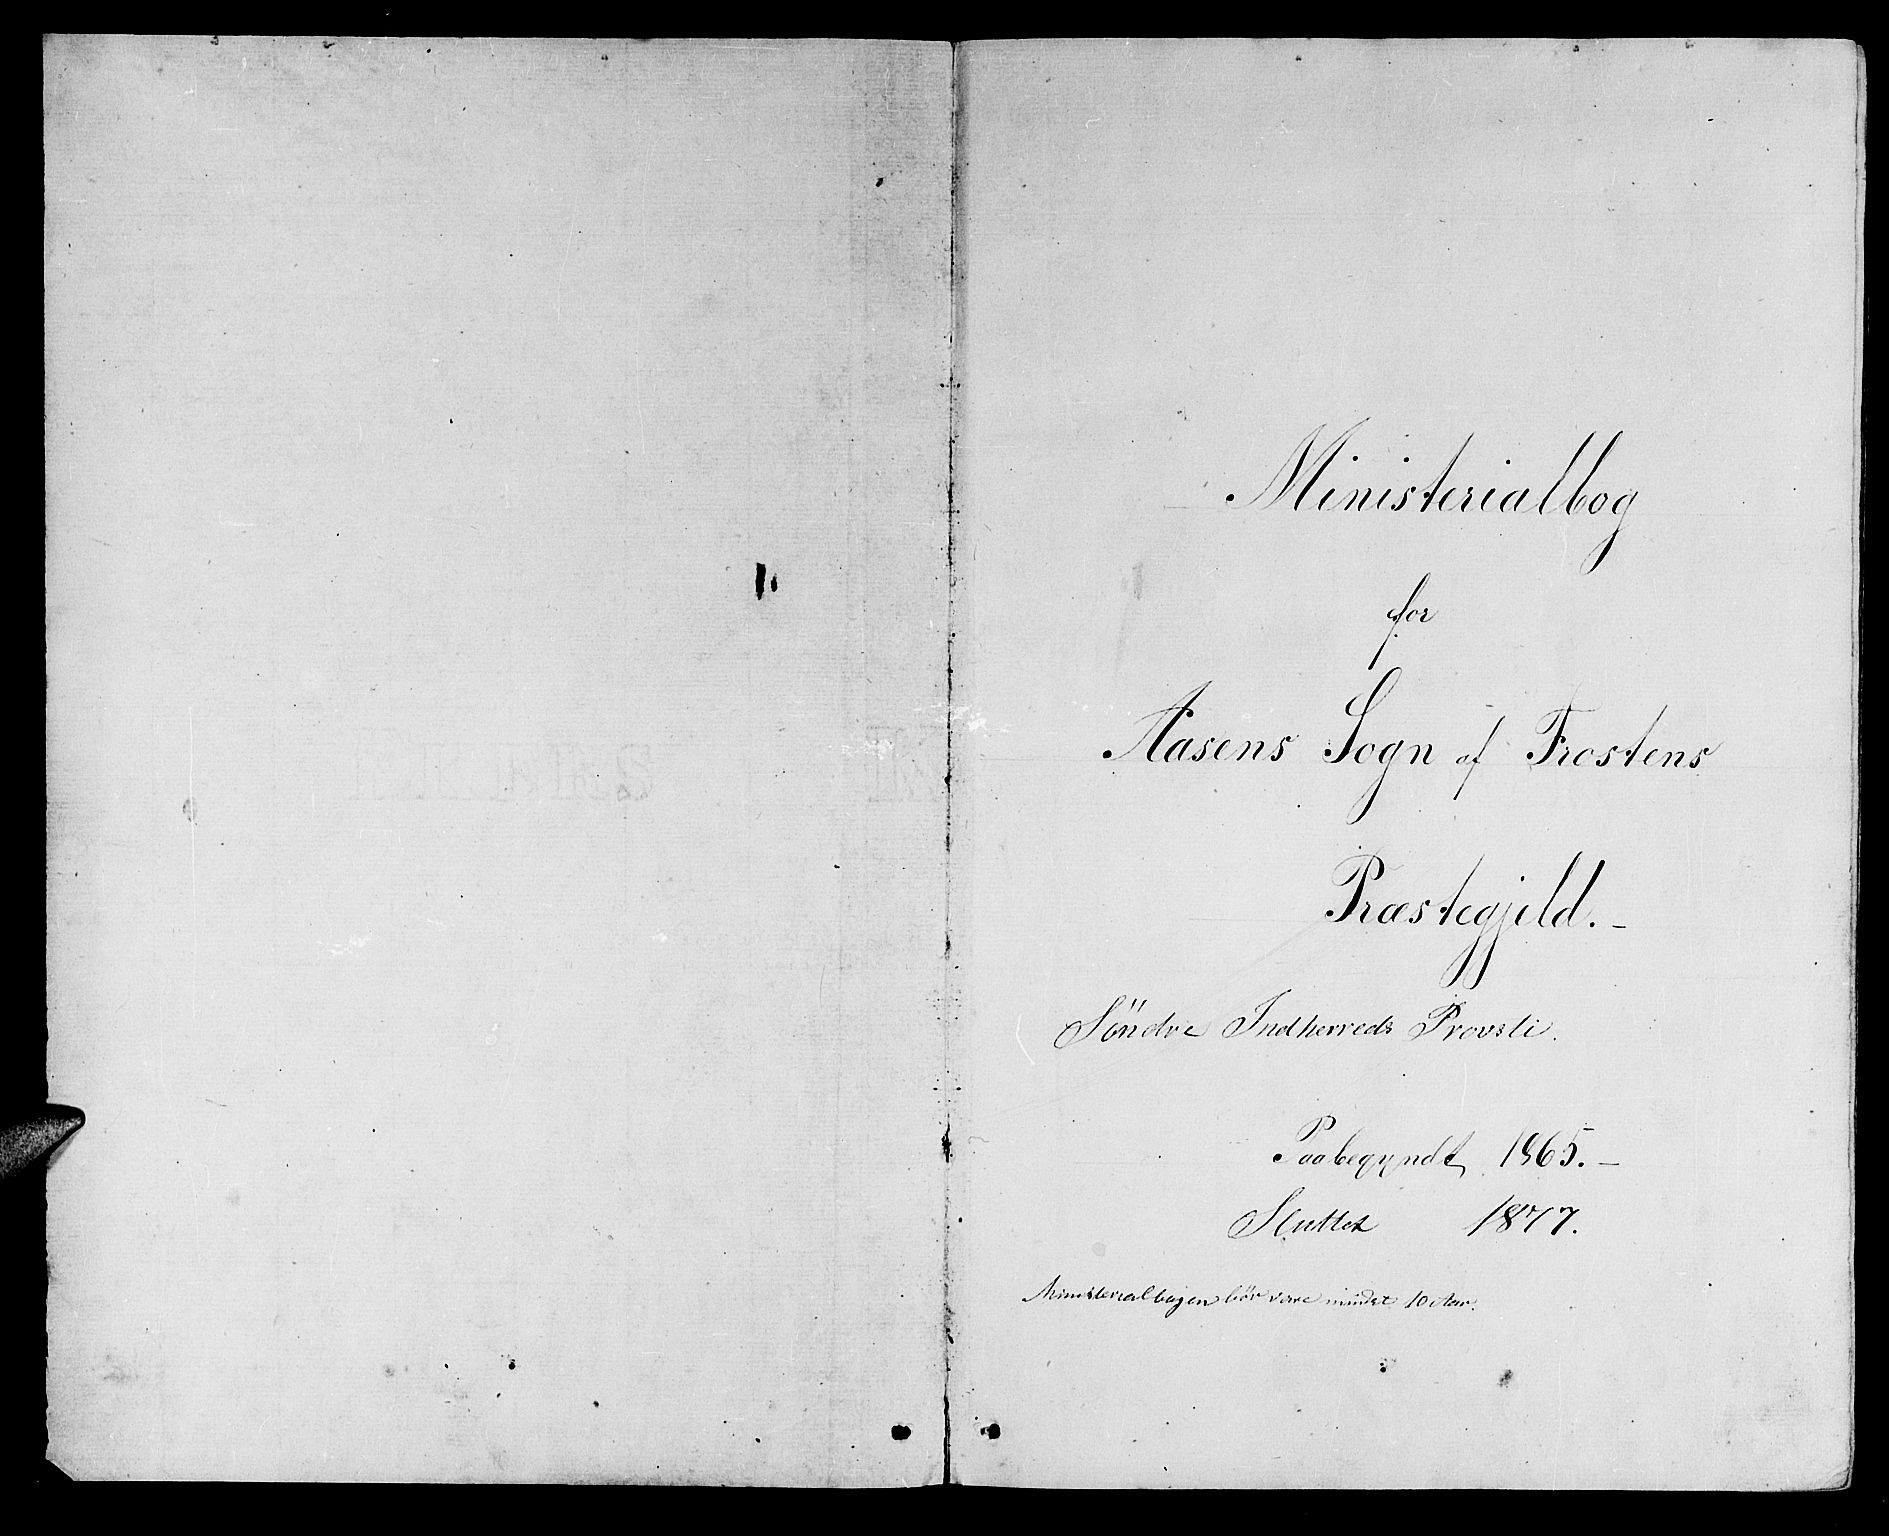 Ministerialbog
for
Aasens Sogn af Frostens
Præstegjeld.-
Söndre Indherreds Provsti.
Paabegyndt 1865.-
Sluttet 1877.
Ministerialbogen bör være mindst 10 Aar.